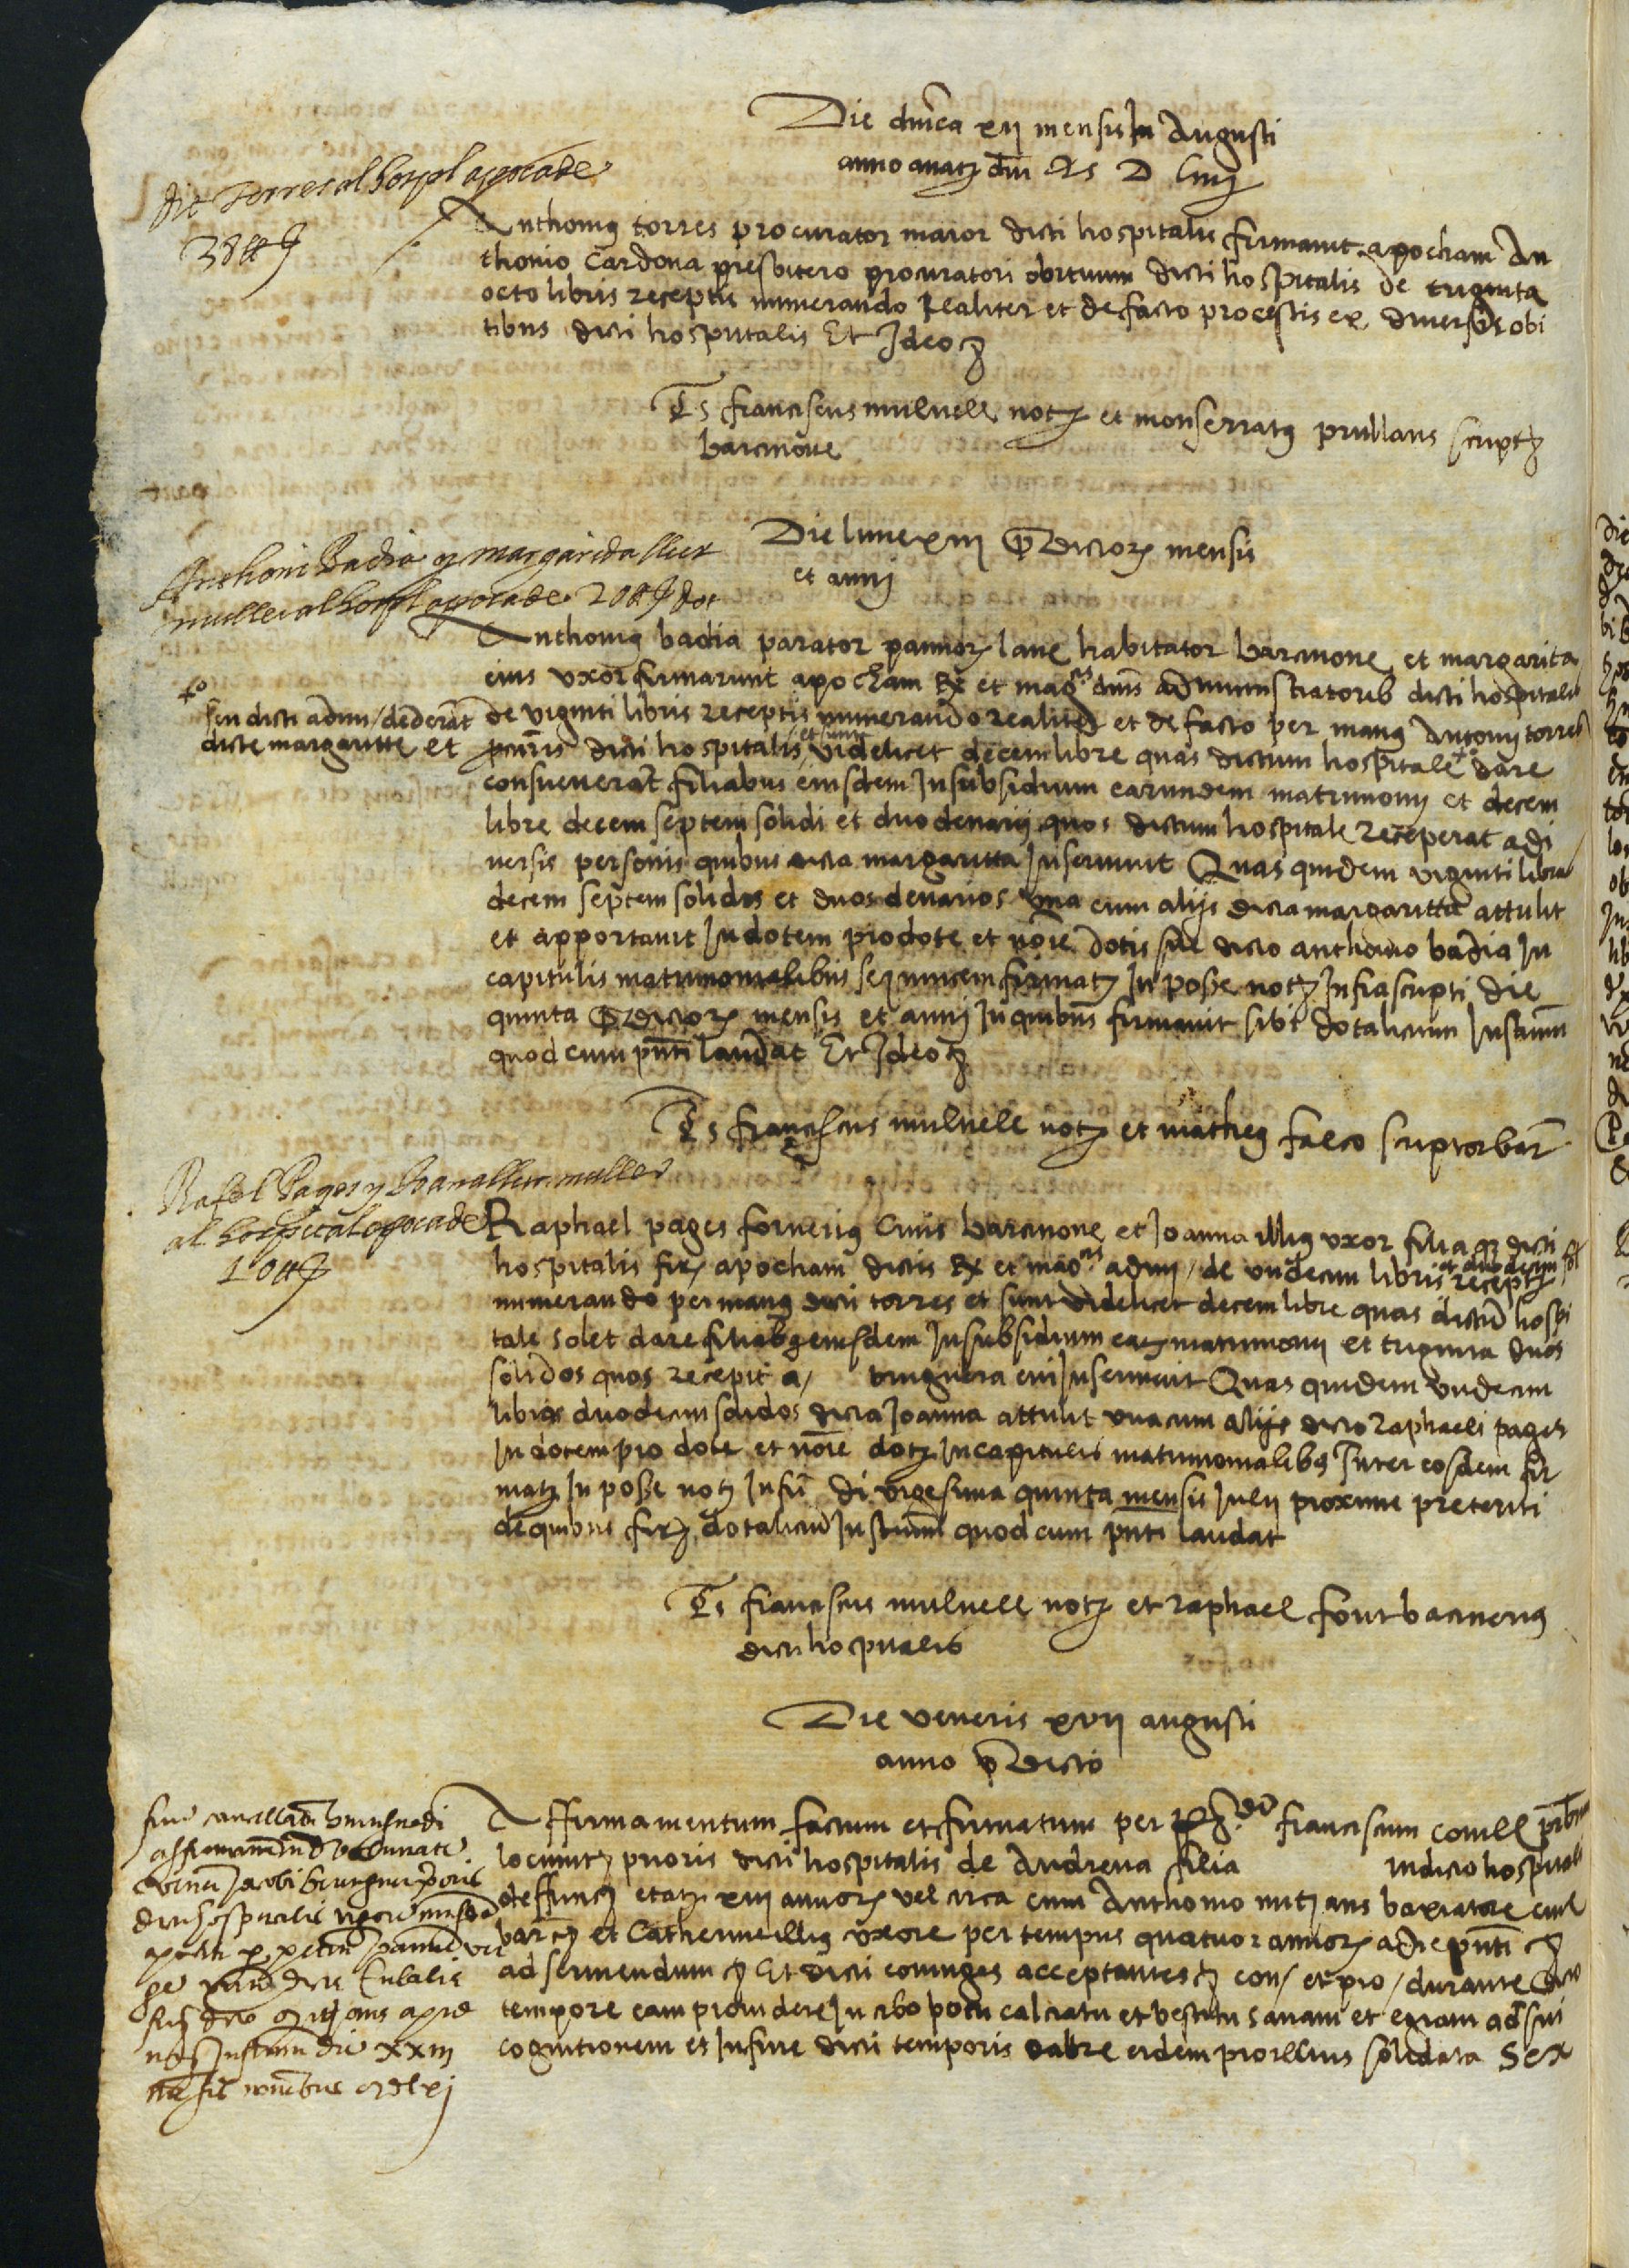 Die dnica xii mensis Augusti
anno a natz dni M D Liiij
de Torres al hospl apoca de
38 ℔
Anthonius torres procurator maior dicti hospitalis firmavit apocham An
thonio Cardona presbitero procuratori obituum dicti hospitalis de triginta
octo libris receptis numerando Realiter et de facto procestis ex diversis obi
tibus dicti hospitalis Et Ideo etc
Ts franciscus mulnell not et monserratus prullans script
barcinone
Die lune xiii predictorum mensis
et anni
Anthoni Badia y margarida llur
muller al hospl apoca de 20 ℔ dot
Anthonius badia parator pannorum lane habitator barcinone et margarita
eius uxor firmarunt apocham Rx et magcis dnis administratorib dicti hospitalis
de viginti libris receptis numerando realiter et de facto per manus Antonij torres
pcuris dicti hospitalis et sunt videlicet decem libre quas dictum hospitale + dare
+ seu dicti admi / dederat
dicte margaritte et
consueverat filiabus eiusdem In subsidium earundem matrimonij et decem
libre decem septem solidi et duo denarij quos dictum hospitale receperat a di
versis personis quibus dicta margaritta Inservivit Quas quidem viginti libras
decem septem solidos et duos denarios una cum alijs dicta margaritta attulit
et apportavit In dotem pro dote et noie dotis sue dicto anthonio badia In
capitulis matrimonialibus firmatz In posse notz Infrascripti die
quinta predictorum mensis et anni In quibus firmavit sibi dotalicium Instrum
quod cum pnti laudat Et Ideo etc
Ts franciscus mulnell notz et matheus falco scriptor bar
Rafel Pages y Joana llur muller
al hospital apoca de
10 ℔
Raphael pages fornerius Civis barcinone et Joanna illius uxor filia que dicti
hospitalis fir apocham dictis Rx et magcis admi / de undecim libris et duodecim sol receptz
numerando per manus dicti torres et sunt videlicet decem libre quas dictu hospi
tale solet dare filiabus eiusdem In subsidium earum matrimonij et triginta duos
solidos quos recepit a / cui Inservivit Quas quidem undecim
libras duodecim solidos dicta Joanna attulit una cum alijs dicto raphaeli pages
In dotem pro dote et noie dotz In capitulis matrimonialibus Inter eosdem fir
matz In posse notz Infri di vigesima quinta mensis Julij proxime preteriti
de quibus firz dotaliciu Instrum quod cum pnti laudat
Ts franciscus mulnell notz et raphael font bacinerius
dicti hospitalis
Die veneris xvii augusti
anno predicto
Affirmamentum factum et firmatum per franciscum comell pbrum
locumtz prioris dicti hospitalis de Andreua filia In dicto hospitali
deffuncz etatz xiii annorum vel circa cum Anthonio mitjans baxiatore cive
bar et Catherine illius uxore per tempus quatuor annorum a die pnti etc
ad serviendum etc Et dicti coniuges acceptantes etc con / et pro / durante dicto
tempore eam providere In cibo potu calciatu et vestitu sanam et egram ad sui
cognitionem et In fine dicti temporis dabre eidem pro illius solidata Sex
fuit cancellatu huiusmodi
dicti hospitalis